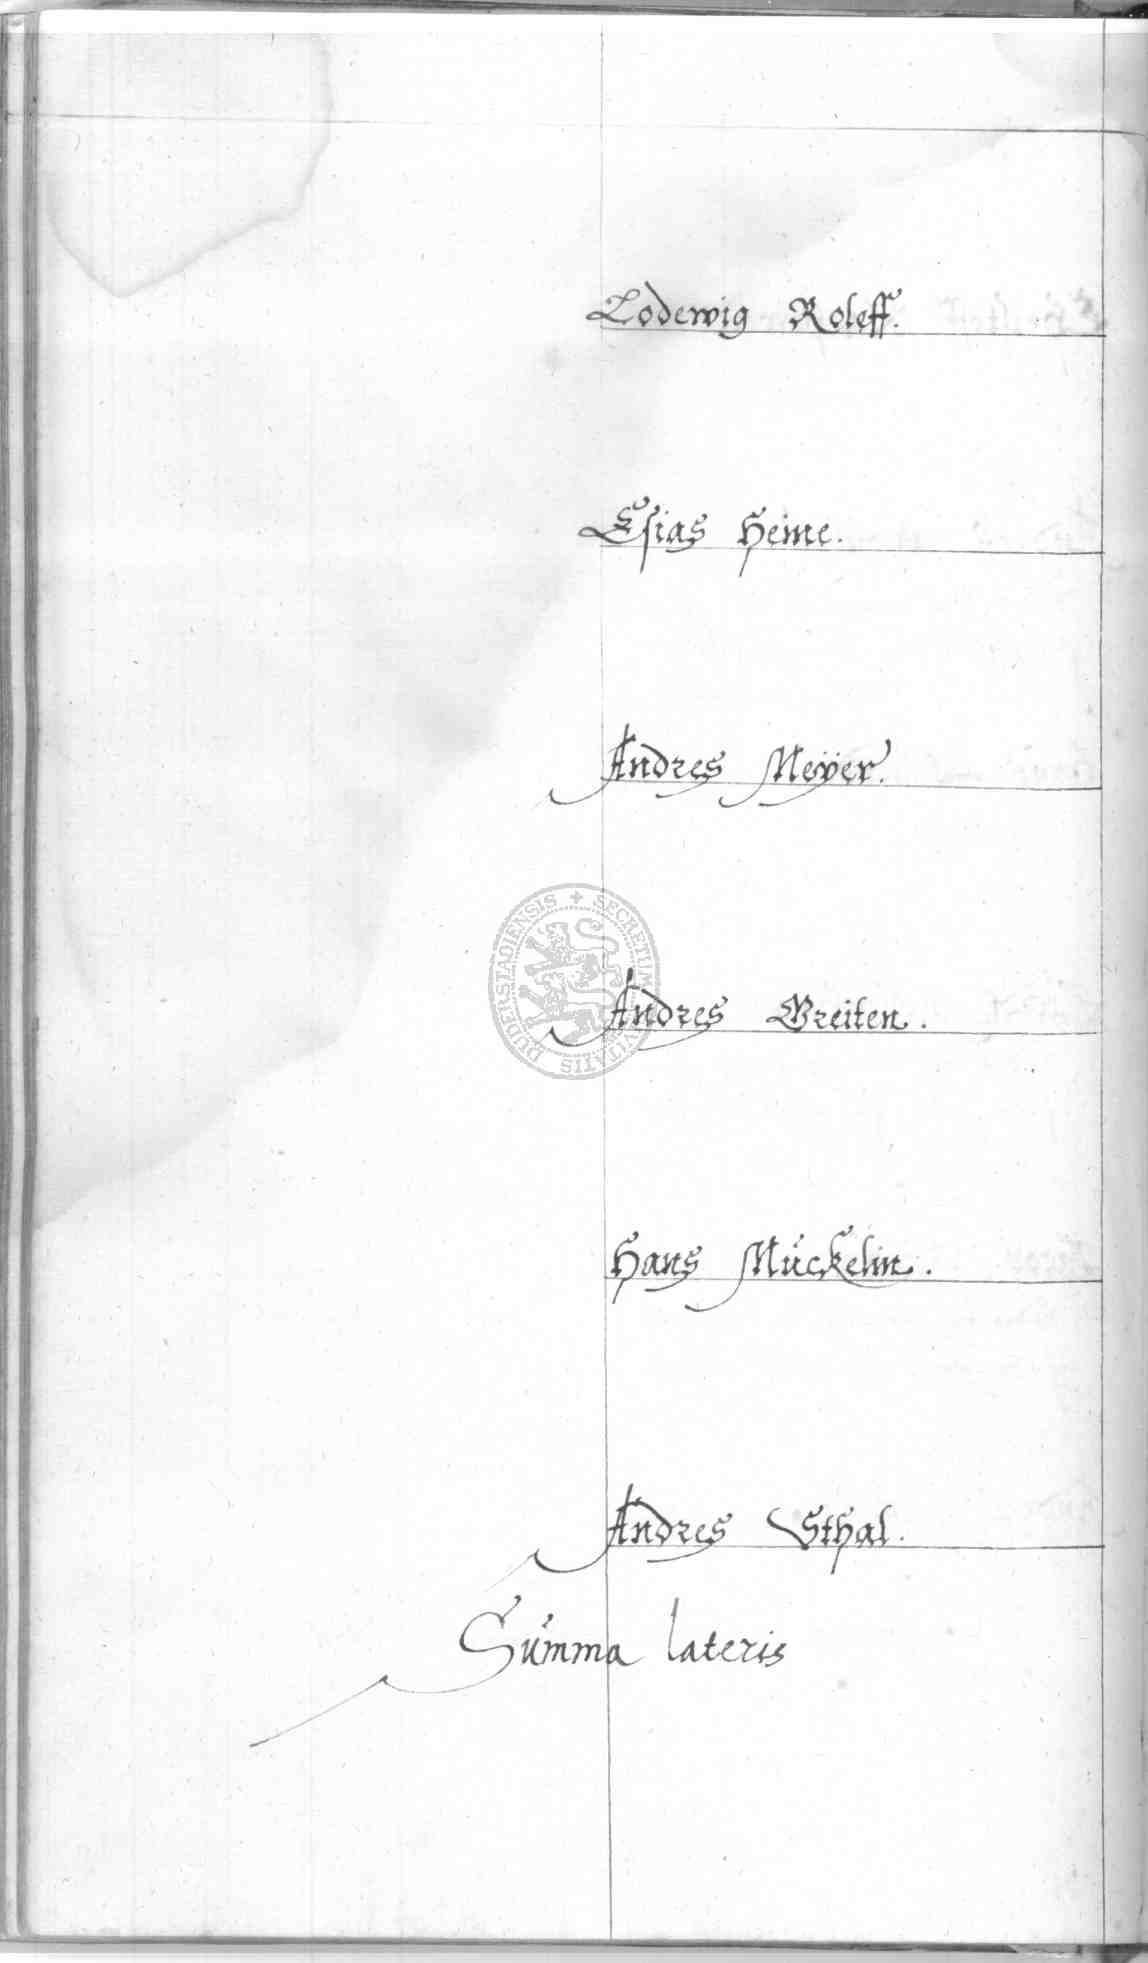 Lodewig Roleff.
Esias Heine.
Andres Meÿer.
SECRETUM CIVITATIS DUDERSTADIENSIS
Andres Breiten.
Hans Mückelin.
Andres Sthal.
Summa lateris